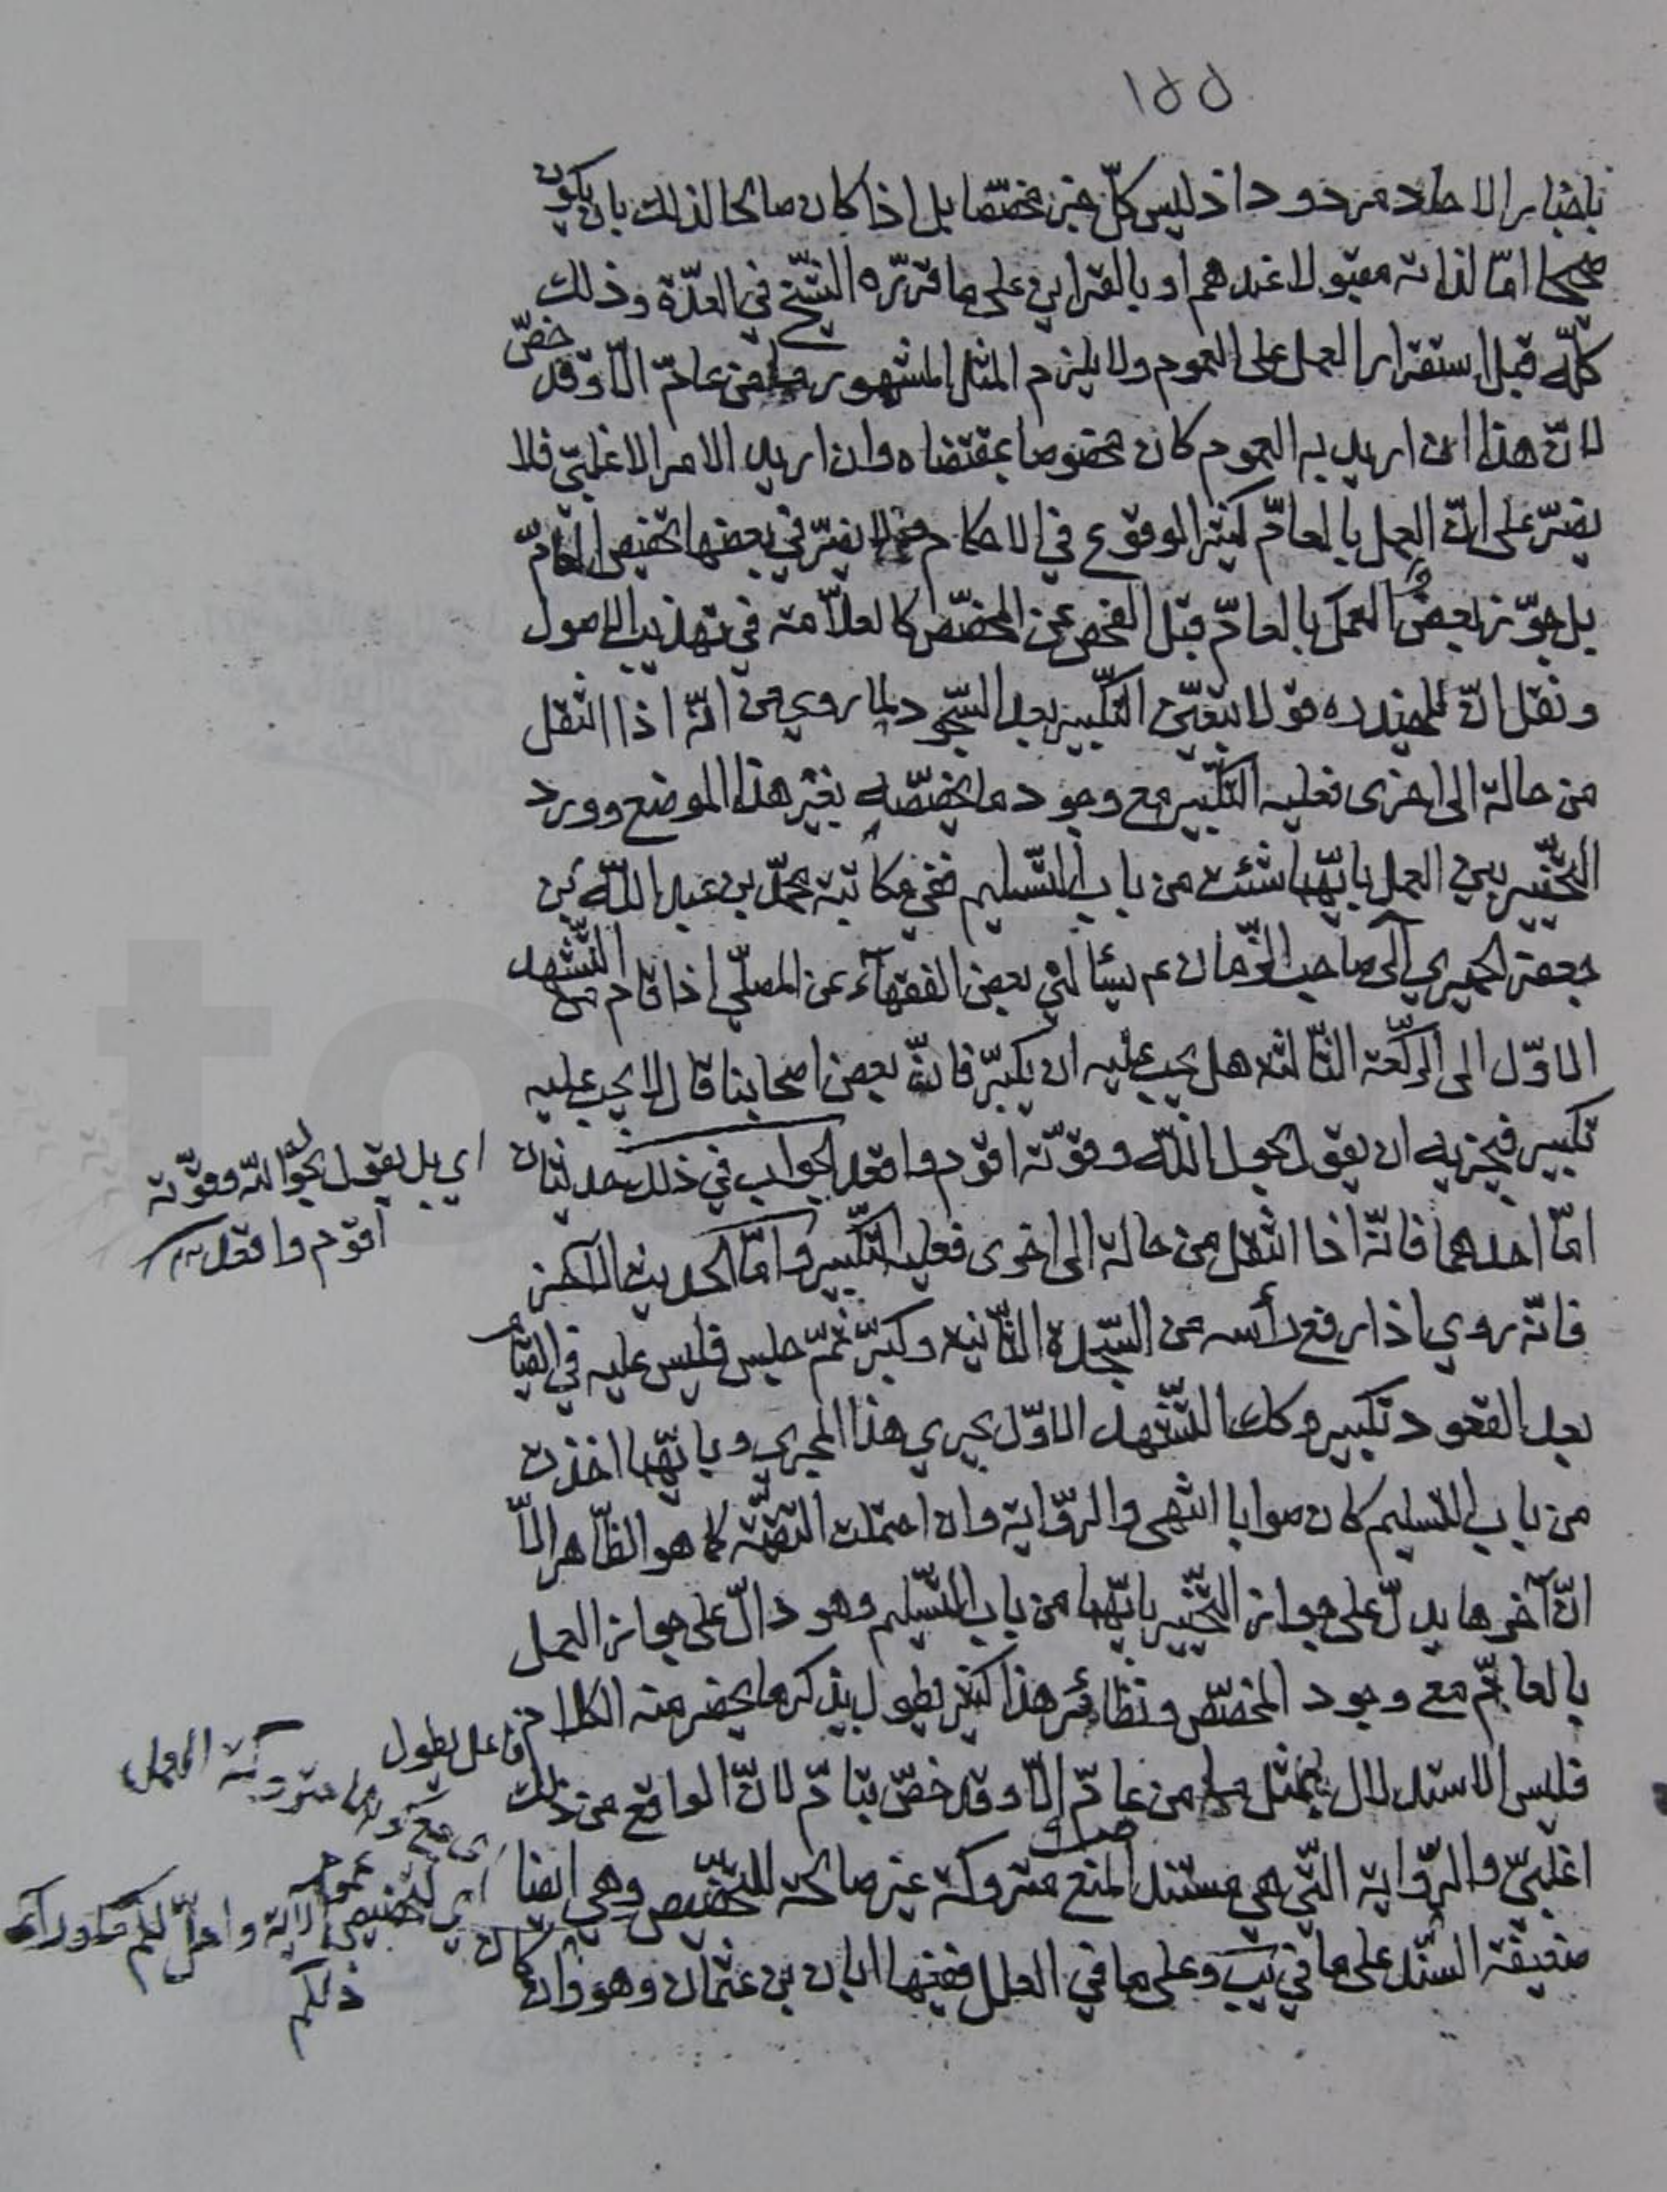 ١٥٥
باخبار الاحاد مردودا ذ ليس كلّ خبر مخصّصا بل اذا كان صالحا لذلك بان يكون
صحيحا امّا لذاته مقبولا عندهم او بالقراين على ما قرّره الشّيخ في العدّة وذلك
كلّه قبل استقرار العمل على العموم ولا يلزم المثل المشهور ما من عامّ الّا وقد خصّ
لانّ هذا ان اريد به العموم كان مخصوصا بمقتضاه وان اريد الامر الاغلبيّ فلا
يضرّ على انّ العمل بالعامّ كثير الوقوع في الاحكام فلا يضرّ في بعضها تخصيص العامّ
بل جوّز بعض العمل بالعامّ قبل الفحص عن المخصّص كالعلّامة في تهذيب الاصول
ونقل انّ للمفيد ره قولا بتعيّن التّكبير بعد السّجود لما روي من انّه اذا انتقل
من حالة الى اخرى فعليه التّكبير مع وجود ما يخصّصه بغير هذا الموضع وورد
التّخيير بين العمل بايّهما شئت من باب التّسليم ففي مكاتبة محمّد بن عبد اللّه بن
جعفر الحميري الى صاحب الزّمان عم يسألني بعض الفقهآء عن المصلّي اذا قام من التّشهد
الاوّل الى الرّكعة الثّالثة هل يجب عليه ان يكبّر فانّ بعض اصحابنا قال لا يجب عليه
تكبير فيجزيه ان يقول بحول اللّه وقوّته اقوم واقعد الجواب في ذلك حديثان
اي بل يقول بحول اللّه وقوّته
اقوم واقعد
امّا احدهما فانّه اذا انتقل من حالة الى اخرى فعليه التّكبير وامّا الحديث الآخر
فانّه روي اذا رفع رأسه من السّجدة الثّانية وكبّر ثمّ جلس فليس عليه في القيام
بعد القعود تكبير وكك التّشهد الاوّل يجري هذا المجرى وبايّهما اخذت
من باب التّسليم كان صوابا انتهى والرّواية وان احتملت التقيّة كما هو الظّاهر الّا
انّ آخرها يدلّ على جواز التّخيير بايّهما من باب التّسليم وهو دالّ على جواز العمل
بالعامّ مع وجود المخصّص ونظائر هذا كثير يطول بذكر ما يحضر منه الكلام
فاعل يطول
فليس الاستدلال بمثل ما من عامّ الّا وقد خصّ بتامّ لانّ الواقع من ذلك
اغلبيّ والرّواية الّتي هي مستند المنع متروكة غير صالحة للتّخصيص وهي ايضا
اي مع كونها متروكة العمل
اي لتخصيص عموم الآية واحلّ لكم ما ورآء
ذلكم
ضعيفة السّند على ما في يب وعلى ما في العلل ففيها ابان بن عثمان وهو وان كان